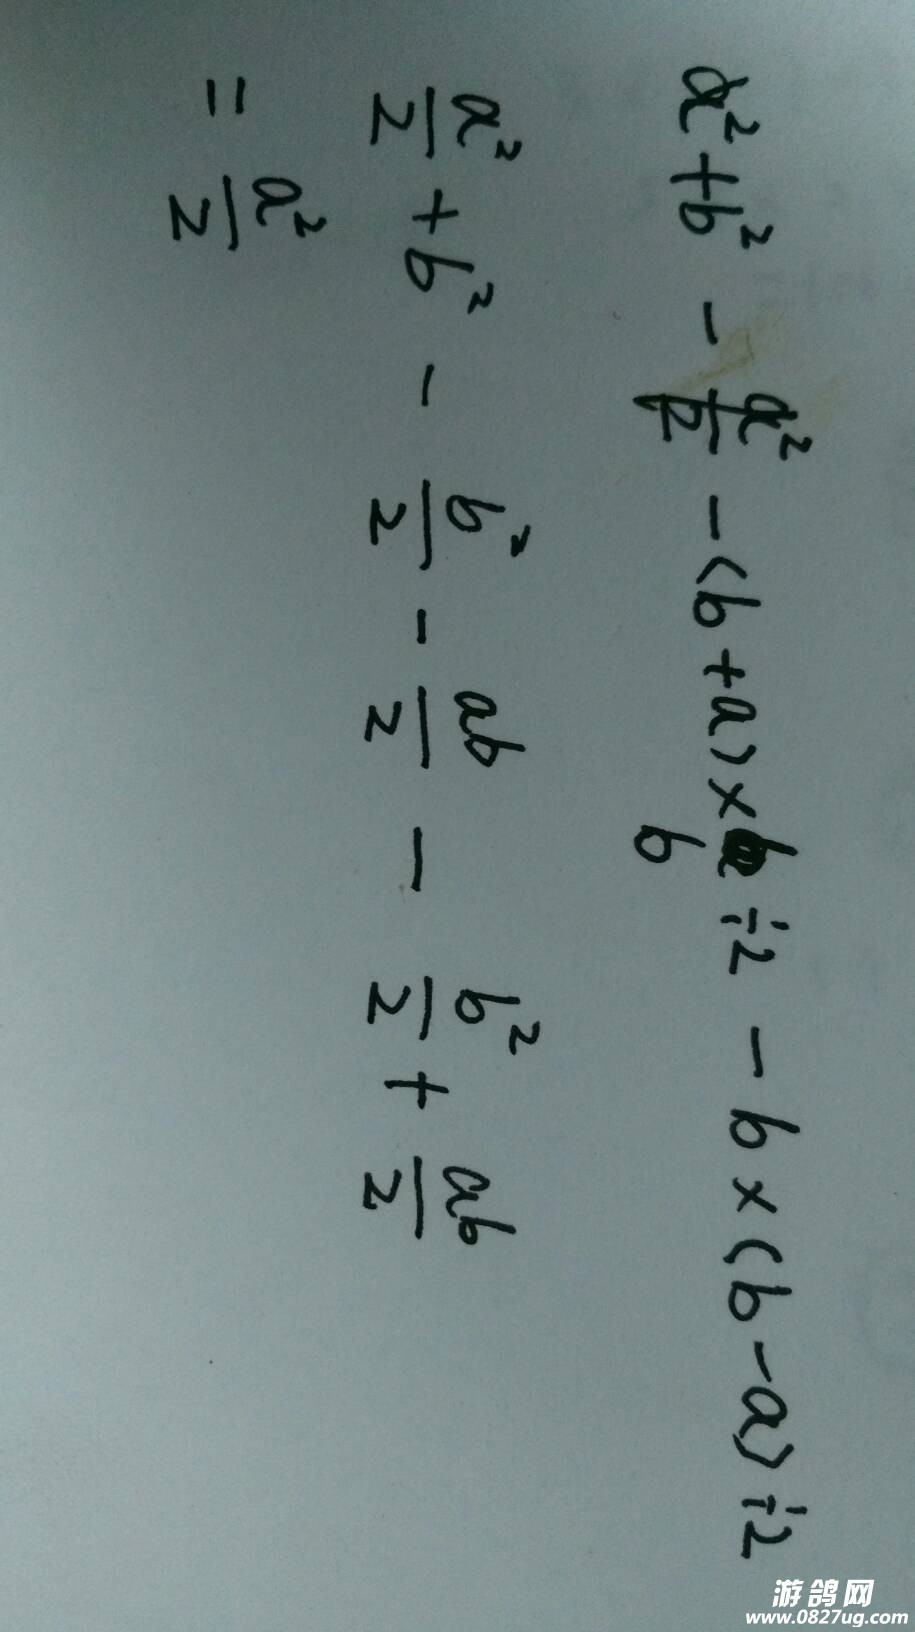 a² + b² - a²/2 - (b + a) × b ÷ 2 - b × (b - a) ÷ 2
a²/2 + b² - b²/2 - ab/2 - b²/2 + ab/2
= a²/2
游鸽网
www.0827ug.com